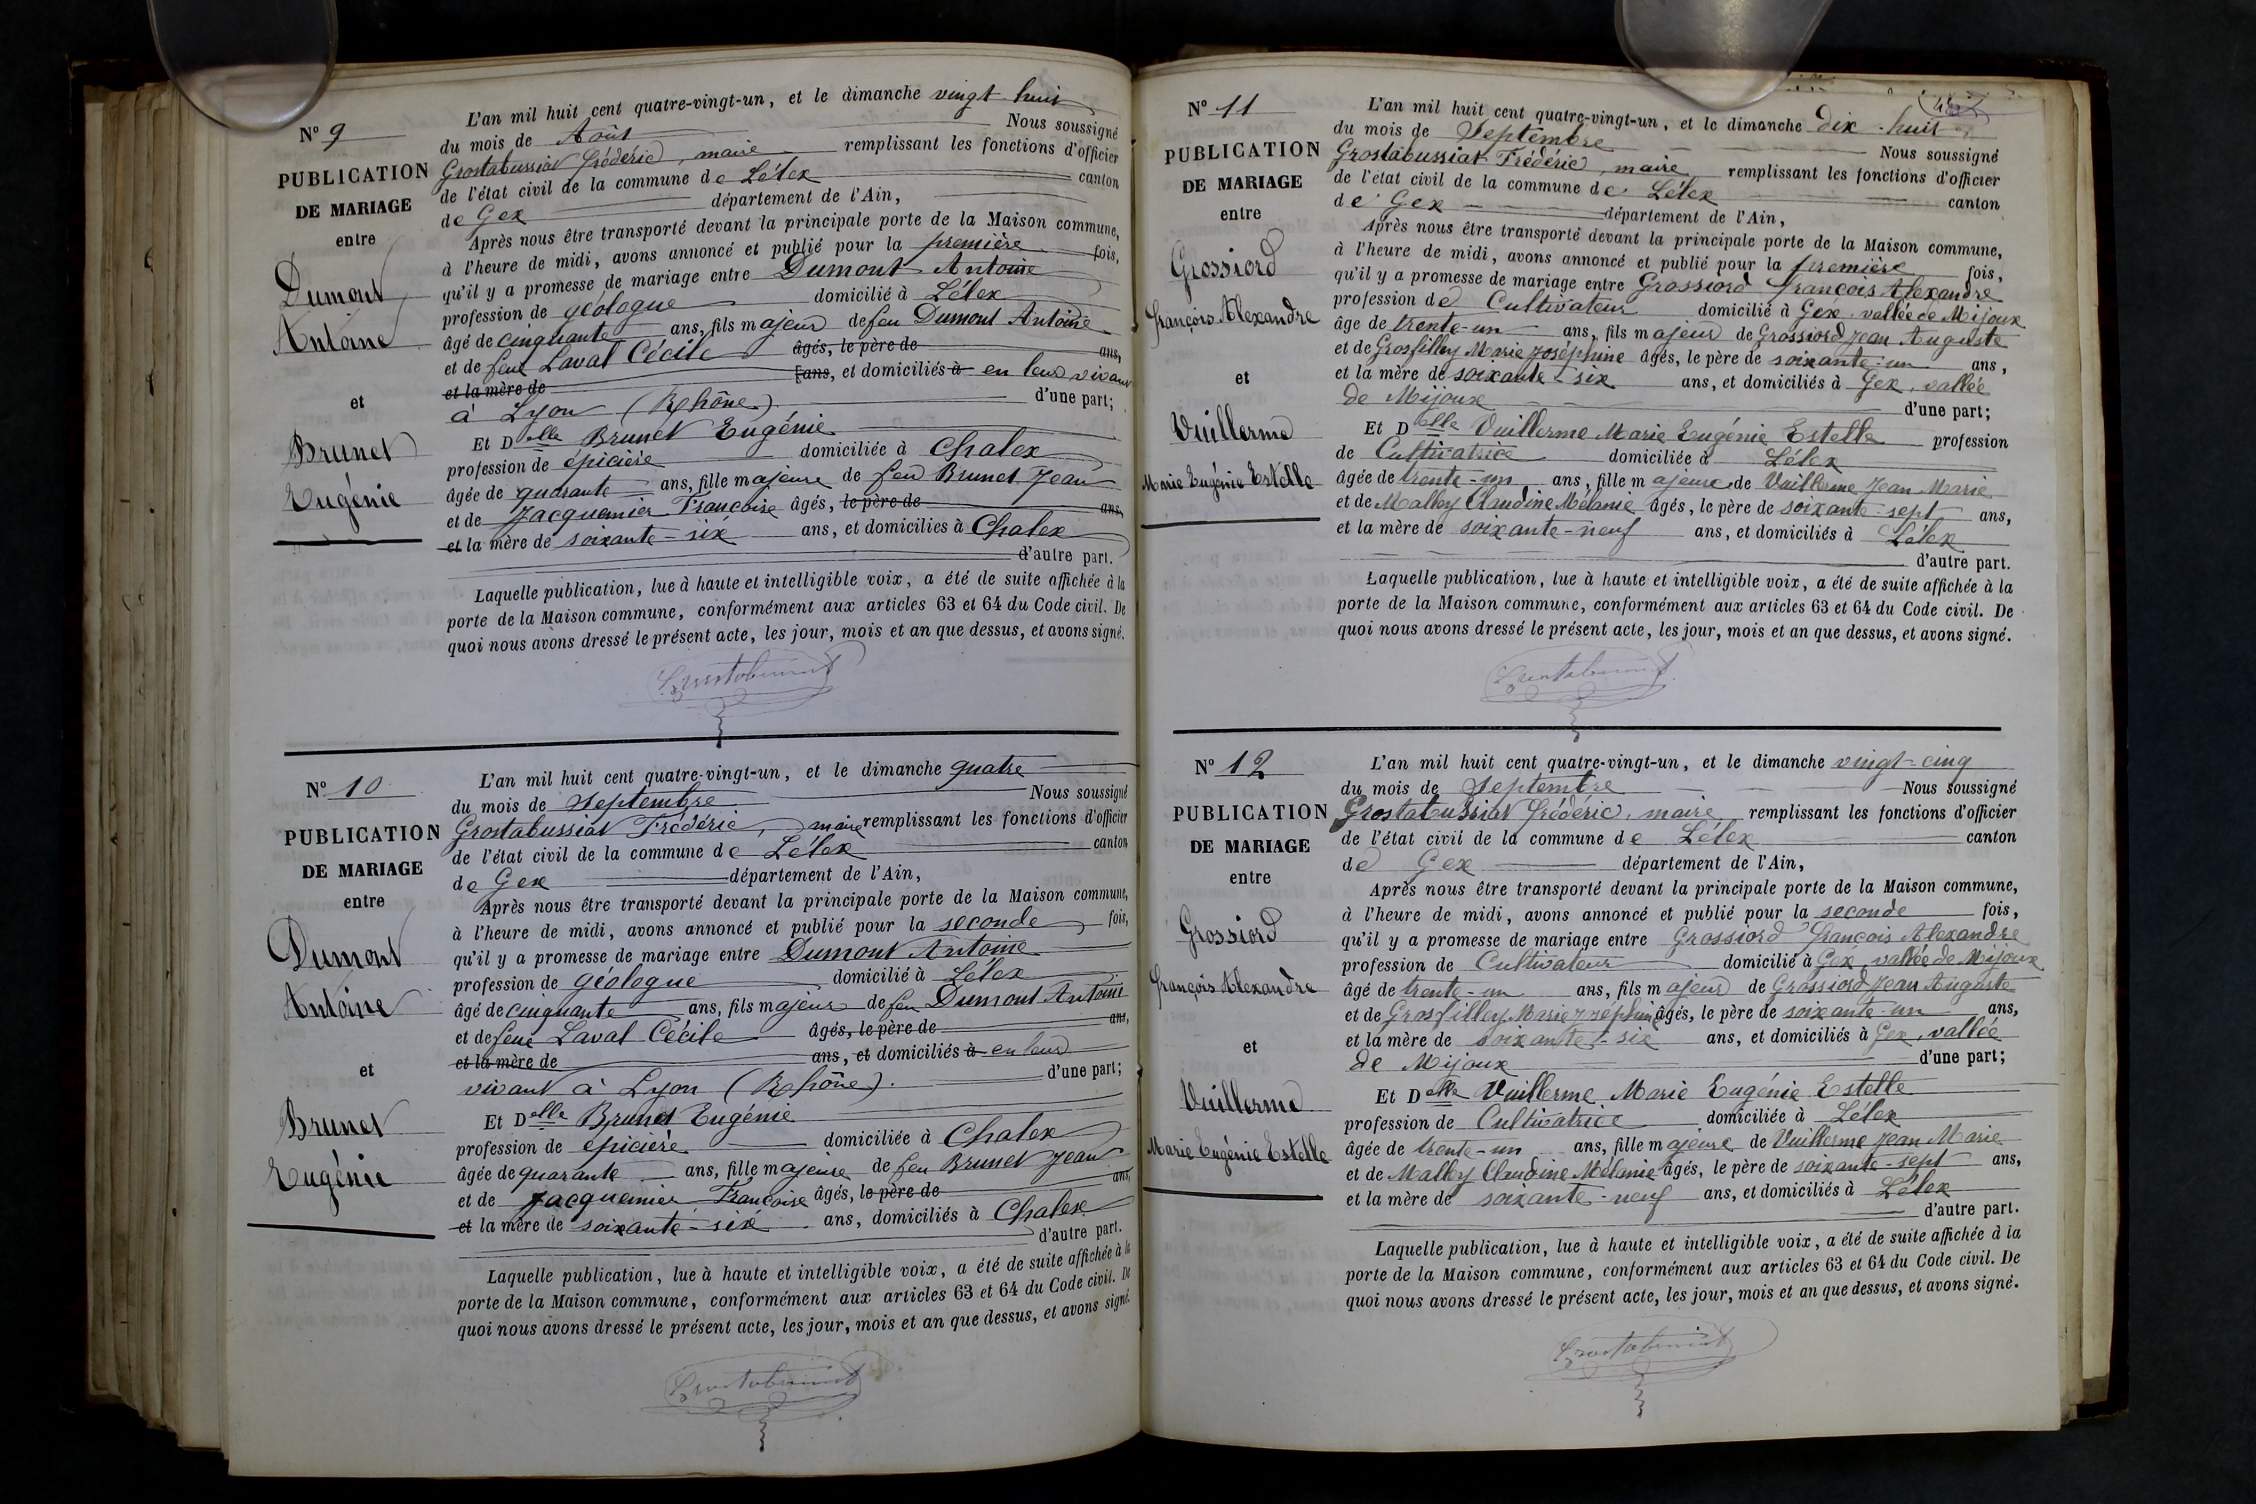 N° 9
PUBLICATION
DE MARIAGE
entre
Dumont
Antoine
et
Brunet
Eugénie
L'an mil huit cent quatre-vingt-un, et le dimanche vingt-huit
du mois de Août Nous soussigné
Grostabussiat Frédéric, maire remplissant les fonctions d'officier
de l'état civil de la commune de Lélex canton
de Gex département de l'Ain,
Après nous être transporté devant la principale porte de la Maison commune,
à l'heure de midi, avons annoncé et publié pour la première fois,
qu'il y a promesse de mariage entre Dumont Antoine
profession de géologue domicilié à Lélex
âgé de cinquante ans, fils majeur de feu Dumont Antoine
et de feue Laval Cécile âgés, le père de ans,
et la mère de ans, et domiciliés à en leur vivant
à Lyon (Rhône) d'une part;
Et Delle Brunet Eugénie
profession de épicière domiciliée à Chalex
âgée de quarante ans, fille majeure de feu Brunet Jean
et de Jacquemier Françoise âgés, le père de ans,
et la mère de soixante-six ans, et domiciliés à Chalex
d'autre part.
Laquelle publication, lue à haute et intelligible voix, a été de suite affichée à la
porte de la Maison commune, conformément aux articles 63 et 64 du Code civil. De
quoi nous avons dressé le présent acte, les jour, mois et an que dessus, et avons signé.
Grostabussiat
N° 10
PUBLICATION
DE MARIAGE
entre
Dumont
Antoine
et
Brunet
Eugénie
L'an mil huit cent quatre-vingt-un, et le dimanche quatre
du mois de Septembre Nous soussigné
Grostabussiat Frédéric, maire remplissant les fonctions d'officier
de l'état civil de la commune de Lélex canton
de Gex département de l'Ain,
Après nous être transporté devant la principale porte de la Maison commune,
à l'heure de midi, avons annoncé et publié pour la seconde fois,
qu'il y a promesse de mariage entre Dumont Antoine
profession de géologue domicilié à Lélex
âgé de cinquante ans, fils majeur de feu Dumont Antoine
et de feue Laval Cécile âgés, le père de ans,
et la mère de ans, et domiciliés à en leur
vivant à Lyon (Rhône). d'une part;
Et Delle Brunet Eugénie
profession de épicière domiciliée à Chalex
âgée de quarante ans, fille majeure de feu Brunet Jean
et de Jacquemier Françoise âgés, le père de ans,
et la mère de soixante-six ans, domiciliés à Chalex
d'autre part.
Laquelle publication, lue à haute et intelligible voix, a été de suite affichée à la
porte de la Maison commune, conformément aux articles 63 et 64 du Code civil. De
quoi nous avons dressé le présent acte, les jour, mois et an que dessus, et avons signé.
Grostabussiat
N° 11
PUBLICATION
DE MARIAGE
entre
Grossiord
François Alexandre
et
Vuillerme
Marie Eugénie Estelle
L'an mil huit cent quatre-vingt-un, et le dimanche dix-huit
du mois de Septembre Nous soussigné
Grostabussiat Frédéric, maire remplissant les fonctions d'officier
de l'état civil de la commune de Lélex canton
de Gex département de l'Ain,
Après nous être transporté devant la principale porte de la Maison commune,
à l'heure de midi, avons annoncé et publié pour la première fois,
qu'il y a promesse de mariage entre Grossiord François Alexandre
profession de Cultivateur domicilié à Gex, vallée de Mijoux
âge de trente-un ans, fils majeur de Grossiord Jean Auguste
et de Grosfilley Marie Joséphine âgés, le père de soixante-un ans,
et la mère de soixante-six ans, et domiciliés à Gex, vallée
de Mijoux d'une part;
Et Delle Vuillerme Marie Eugénie Estelle profession
de Cultivatrice domiciliée à Lélex
âgée de trente-un ans, fille majeure de Vuillerme Jean Marie
et de Malley Claudine Mélanie âgés, le père de soixante-sept ans,
et la mère de soixante-neuf ans, et domiciliés à Lélex
d'autre part.
Laquelle publication, lue à haute et intelligible voix, a été de suite affichée à la
porte de la Maison commune, conformément aux articles 63 et 64 du Code civil. De
quoi nous avons dressé le présent acte, les jour, mois et an que dessus, et avons signé.
Grostabussiat
N° 12
PUBLICATION
DE MARIAGE
entre
Grossiord
François Alexandre
et
Vuillerme
Marie Eugénie Estelle
L'an mil huit cent quatre-vingt-un, et le dimanche vingt-cinq
du mois de Septembre Nous soussigné
Grostabussiat Frédéric, maire remplissant les fonctions d'officier
de l'état civil de la commune de Lélex canton
de Gex département de l'Ain,
Après nous être transporté devant la principale porte de la Maison commune,
à l'heure de midi, avons annoncé et publié pour la seconde fois,
qu'il y a promesse de mariage entre Grossiord François Alexandre
profession de Cultivateur domicilié à Gex, vallée de Mijoux
âgé de trente-un ans, fils majeur de Grossiord Jean Auguste
et de Grosfilley Marie Joséphine âgés, le père de soixante-un ans,
et la mère de soixante-six ans, et domiciliés à Gex, vallée
de Mijoux d'une part;
Et Delle Vuillerme Marie Eugénie Estelle
profession de Cultivatrice domiciliée à Lélex
âgée de trente-un ans, fille majeure de Vuillerme Jean Marie
et de Malley Claudine Mélanie âgés, le père de soixante-sept ans,
et la mère de soixante-neuf ans, et domiciliés à Lélex
d'autre part.
Laquelle publication, lue à haute et intelligible voix, a été de suite affichée à la
porte de la Maison commune, conformément aux articles 63 et 64 du Code civil. De
quoi nous avons dressé le présent acte, les jour, mois et an que dessus, et avons signé.
Grostabussiat